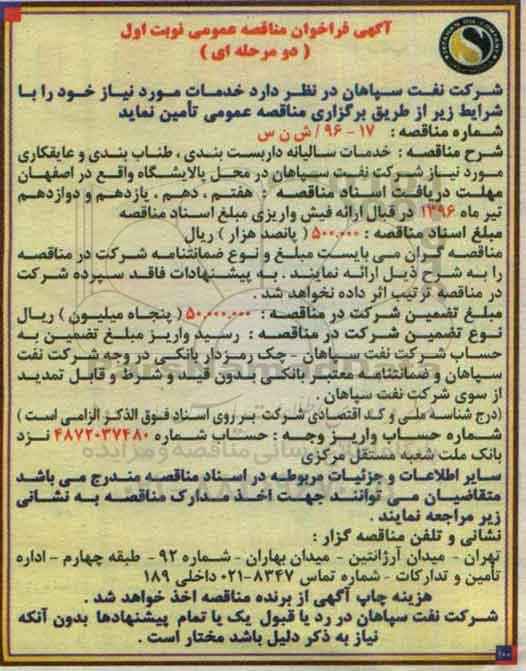 آگهی فراخوان مناقصه عمومی نوبت اول
( دو مرحله ای )
شرکت نفت سپاهان در نظر دارد خدمات مورد نیاز خود را با
شرایط زیر از طریق برگزاری مناقصه عمومی تأمین نماید
شماره مناقصه : ۱۷ - ۹۶ / ش ن س
شرح مناقصه : خدمات سالیانه داربست بندی ، طناب بندی و عایقکاری
مورد نیاز شرکت نفت سپاهان در محل پالایشگاه واقع در اصفهان
مهلت دریافت اسناد مناقصه : هفتم ، دهم ، یازدهم و دوازدهم
تیر ماه ۱۳۹۶ در قبال ارائه فیش واریزی مبلغ اسناد مناقصه
مبلغ اسناد مناقصه : ۵۰۰,۰۰۰ ( پانصد هزار ) ریال
مناقصه گران می بایست مبلغ و نوع ضمانتنامه شرکت در مناقصه
را به شرح ذیل ارائه نمایند . به پیشنهادات فاقد سپرده شرکت
در مناقصه ترتیب اثر داده نخواهد شد .
مبلغ تضمین شرکت در مناقصه : ۵۰,۰۰۰,۰۰۰ ( پنجاه میلیون ) ریال
نوع تضمین شرکت در مناقصه : رسید واریز مبلغ تضمین به
حساب شرکت نفت سپاهان - چک رمزدار بانکی در وجه شرکت نفت
سپاهان و ضمانتنامه معتبر بانکی بدون قید و شرط و قابل تمدید
از سوی شرکت نفت سپاهان .
(درج شناسه ملی و کد اقتصادی شرکت بر روی اسناد فوق الذکر الزامی است )
شماره حساب واریز وجه : حساب شماره ۴۸۷۲۰۳۷۴۸۰ نزد
بانک ملت شعبه مستقل مرکزی
سایر اطلاعات و جزئیات مربوطه در اسناد مناقصه مندرج می باشد
متقاضیان می توانند جهت اخذ مدارک مناقصه به نشانی
زیر مراجعه نمایند .
نشانی و تلفن مناقصه گزار :
تهران - میدان آرژانتین - میدان بهاران - شماره ۹۲ - طبقه چهارم - اداره
تأمین و تدارکات - شماره تماس ۸۳۴۷-۰۲۱ داخلی ۱۸۹
هزینه چاپ آگهی از برنده مناقصه اخذ خواهد شد .
شرکت نفت سپاهان در رد یا قبول یک یا تمام پیشنهادها بدون آنکه
نیاز به ذکر دلیل باشد مختار است .